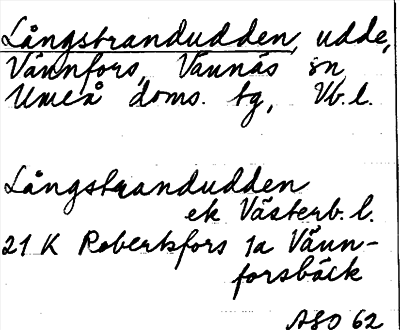 Långstrandudden, udde,
Vännfors, Vännäs sn
Umeå doms. tg, Vb.l.
Långstrandudden
ek Västerb. l.
21 K Robertsfors 1a Vänn-
forsbäck
ASO 62